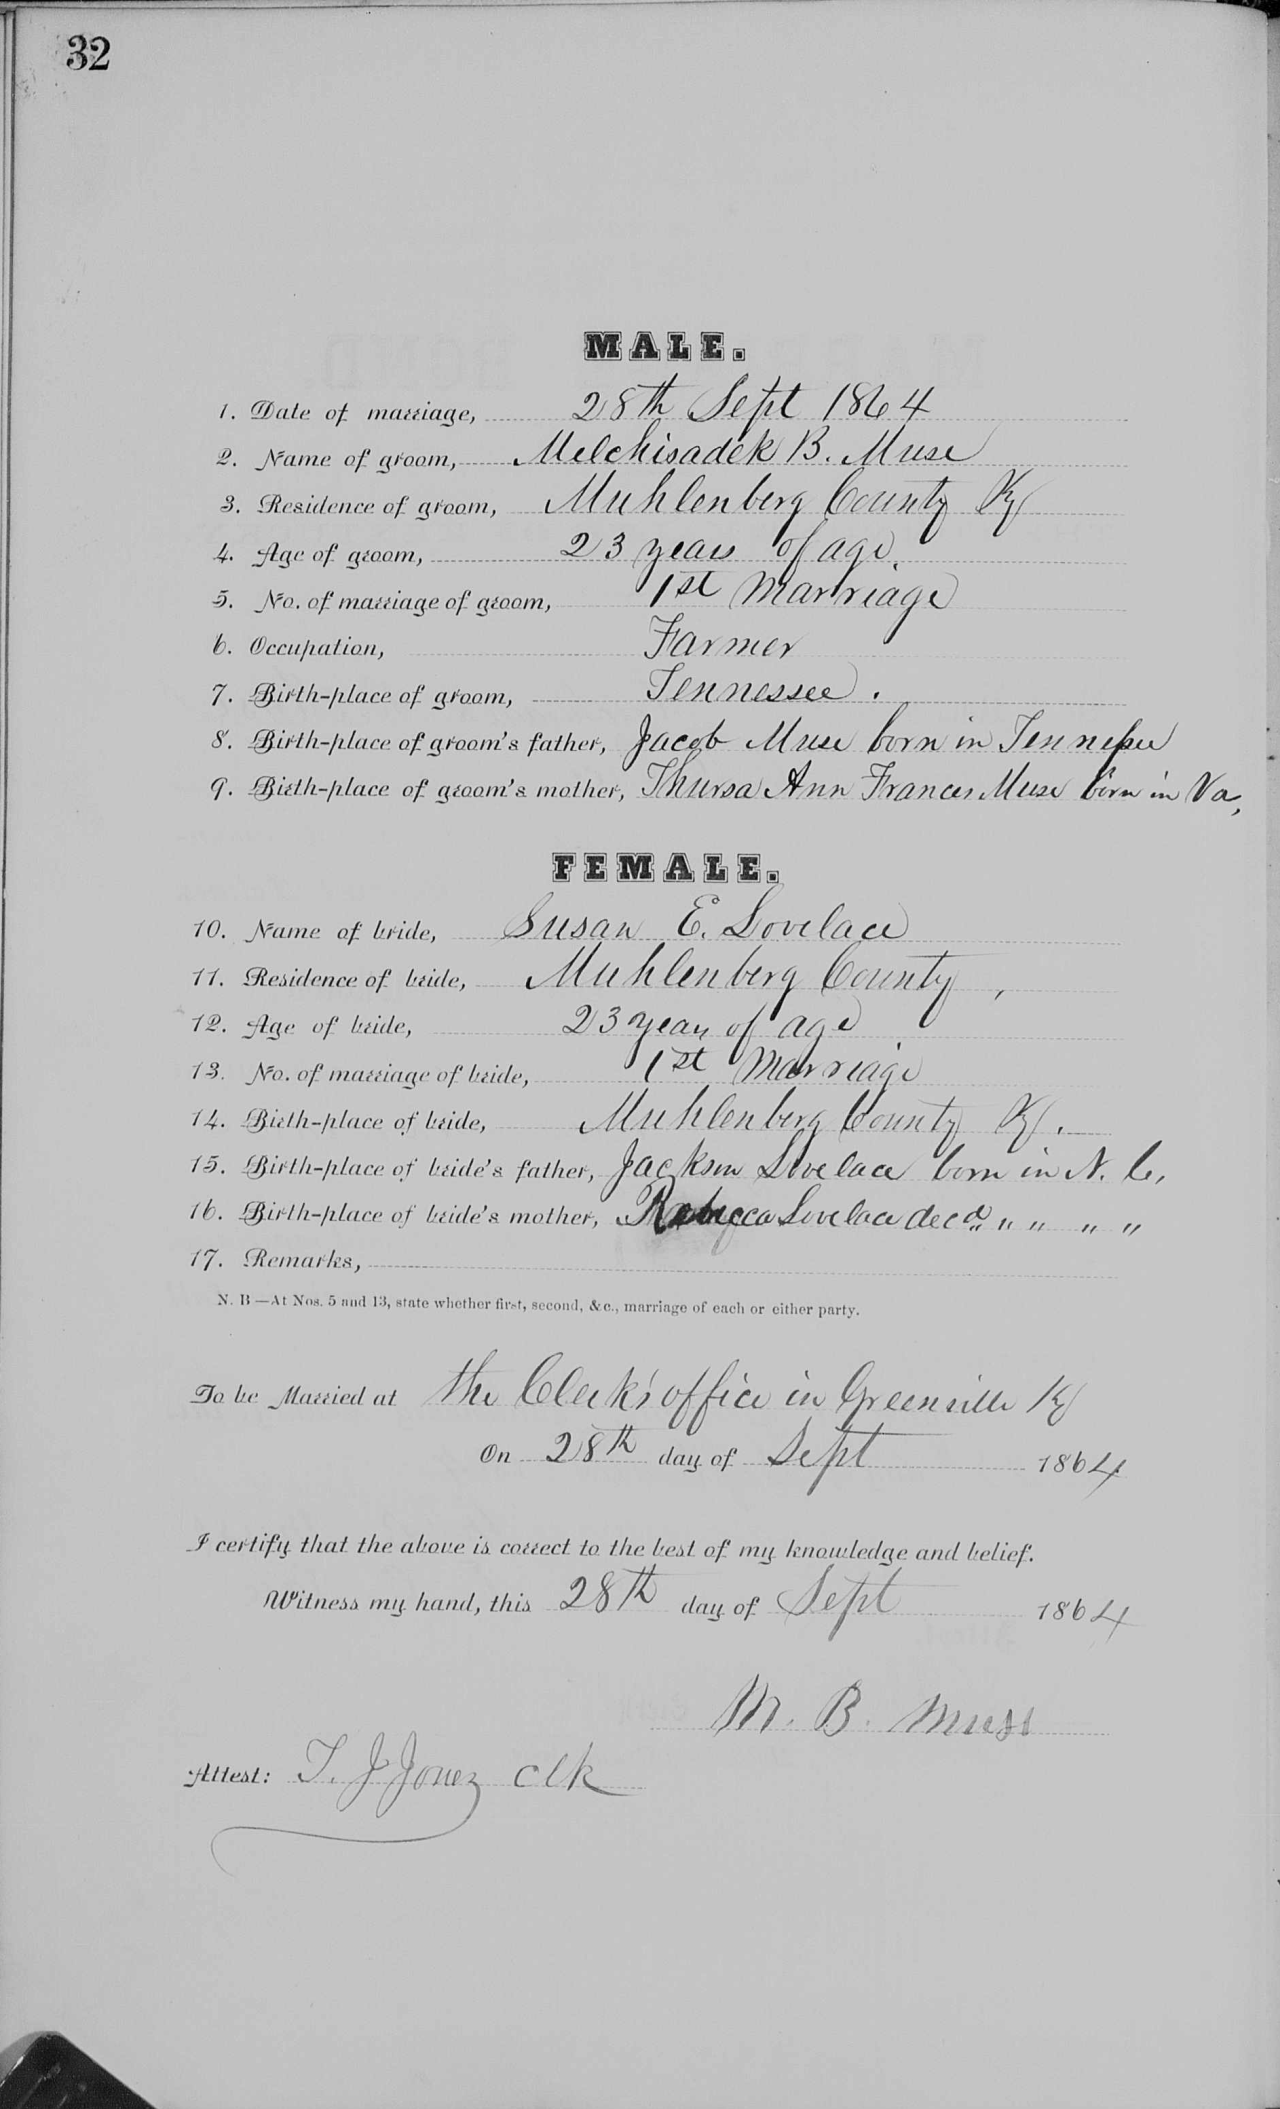 32
MALE.
1. Date of marriage, 28th Sept 1864
2. Name of groom, Melchisadek B. Muse
3. Residence of groom, Muhlenberg County Ky
4. Age of groom, 23 years of age.
5. No. of marriage of groom, 1st Marriage
6. Occupation, Farmer
7. Birth-place of groom, Tennessee.
8. Birth-place of groom's father, Jacob Muse born in Tennessee
9. Birth-place of groom's mother, Thursa Ann Frances Muse born in Va,
FEMALE.
10. Name of bride, Susan E. Lovelace
11. Residence of bride, Muhlenberg County,
12. Age of bride, 23 years of age
13. No. of marriage of bride, 1st Marriage
14. Birth-place of bride, Muhlenberg County Ky.
15. Birth-place of bride's father, Jackson Lovelace born in N. C,
16. Birth-place of bride's mother, Rebecca Lovelace decd " " " "
17. Remarks,
N. B—At Nos. 5 and 13, state whether first, second, &c., marriage of each or either party.
To be Married at the Clerk's office in Greenville Ky
On 28th day of Sept 1864
I certify that the above is correct to the best of my knowledge and belief.
Witness my hand, this 28th day of Sept 1864
M. B. Muse
Attest: T. J Jones clk